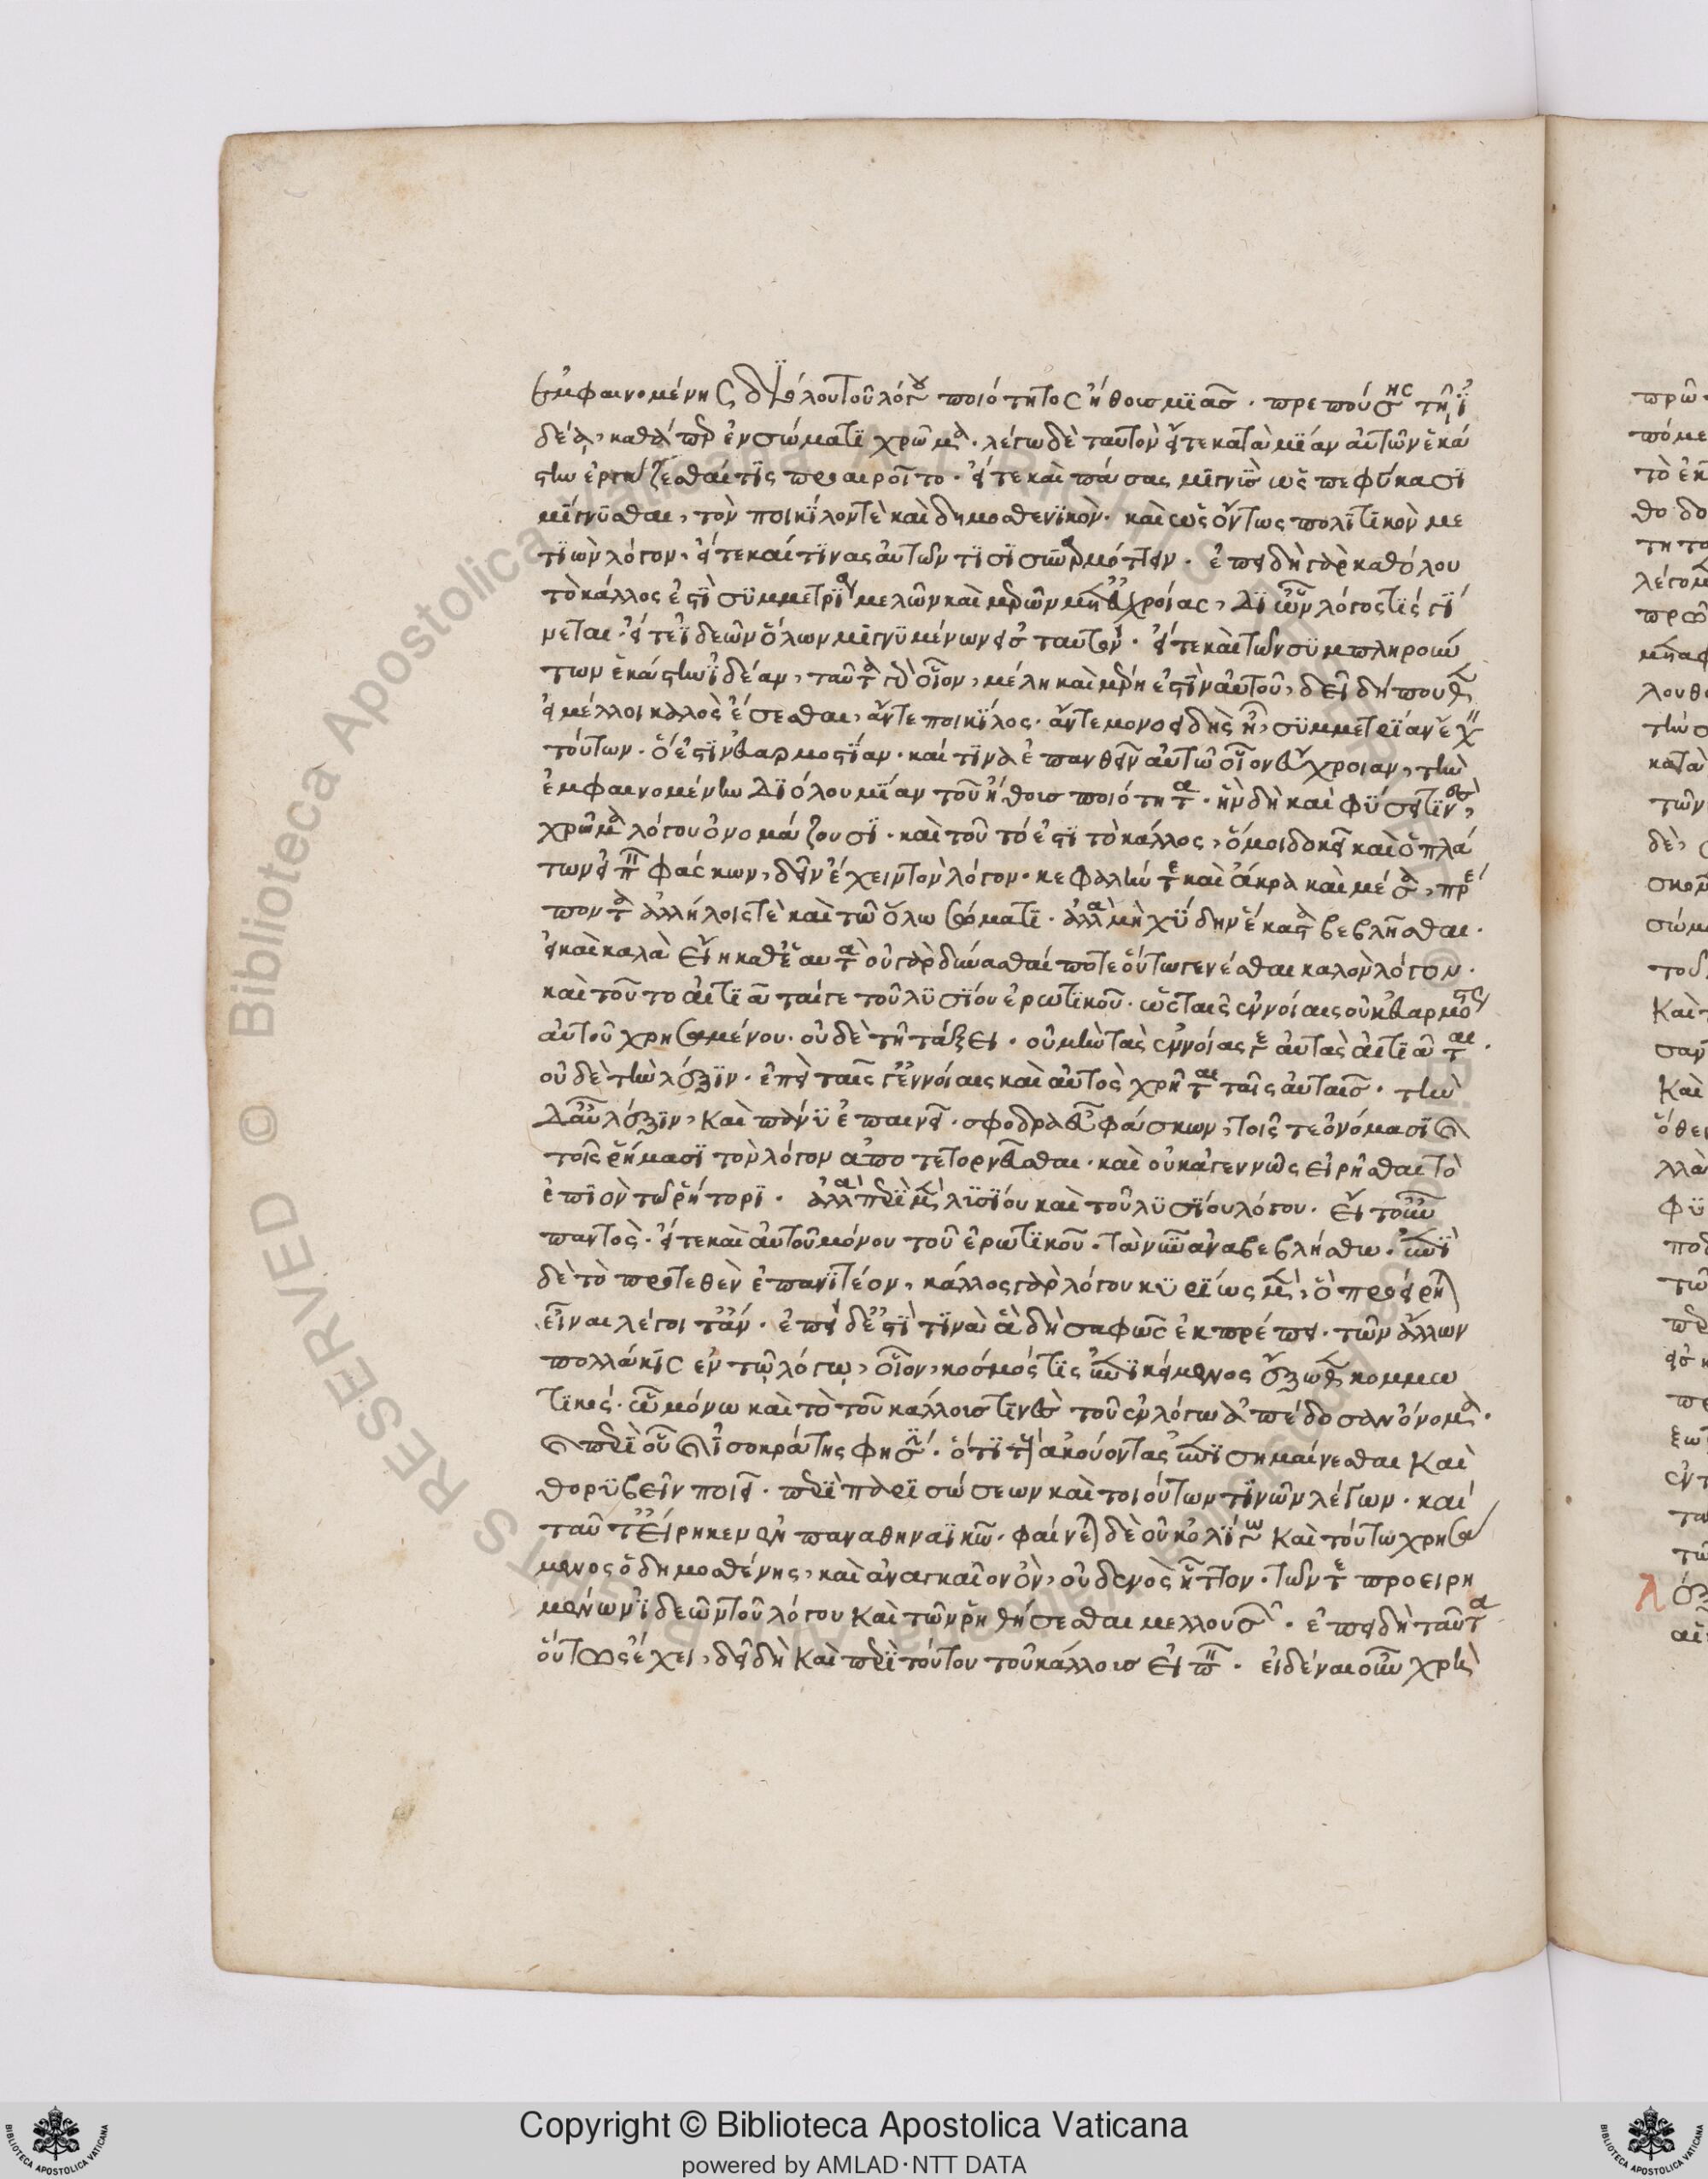 ἐμφαινομένης δι' ὅλου τοῦ λόγου ποιότητος ἤθους μιᾶς · πρεπούσης τῇ ἰ
δέᾳ, καθάπερ ἐν σώματι χρῶμα · λέγω δὲ ταυτὸν εἴτε κατὰ μίαν αὐτῶν ἑκά
στην ἐργάζεσθαί τις προαιροῖτο · εἴτε καὶ πάσας μιγνὺς ὡς πεφύκασι
μίγνυσθαι, τὸν ποικίλον τὲ καὶ δημοσθενικὸν · καὶ ὡς ὄντως πολιτικὸν με
τιὼν λόγον · εἴτε καί τινας αὐτῶν τισι συναρμόττειν · ἐπειδὴ γὰρ καθόλου
τὸ κάλλος ἐστὶ συμμετρία μελῶν καὶ μερῶν μετ' εὐχροίας, δι' ὧν λόγος τίς γί
νεται · εἴτε ἰδεῶν ὅλων μιγνυμένων εἰς ταυτόν · εἴτε καὶ τῶν συμπληρούν
των ἑκάστην ἰδέαν, ταῦτα γὰρ οἷον, μέλη καὶ μέρη ἐστὶν αὐτοῦ, δεῖ δήπουθεν
εἰ μέλλοι καλὸς ἔσεσθαι, ἄν τε ποικίλος · ἄν τε μονοειδὴς ᾖ, συμμετρίαν ἔχειν
τούτων · ὅ ἐστιν εὐαρμοστίαν · καί τινα ἐπανθεῖν αὐτῶ οἷον εὔχροιαν, τὴν
ἐμφαινομένην δι' ὅλου μίαν τοῦ ἤθους ποιότητα · ἣν δὴ καὶ φύσει τινὲς,
χρῶμα λόγου ὀνομάζουσι · καὶ τοῦτό ἐστι τὸ κάλλος, ὅ μοι δοκεῖ καὶ ὁ πλά
των εἰπεῖν φάσκων, δεῖν ἔχειν τὸν λόγον · κεφαλήν τε καὶ ἄκρα καὶ μέσα, πρέ
ποντα ἀλλήλοις τὲ καὶ τῶ ὅλω σώματι · ἀλλὰ μὴ χύδην ἕκαστα βεβλῆσθαι ·
εἰ καὶ καλὰ εἴη καθ' ἑαυτὰ οὐ γὰρ δύνασθαί ποτε οὕτω γενέσθαι καλὸν λόγον ·
καὶ τοῦτο αἰτιᾶταί γε τοῦ λυσίου ἐρωτικοῦ · ὡς ταῖς ἐννοίαις οὐκ εὐαρμόστως
αὐτοῦ χρησαμένου · οὐδὲ τῇ τάξει · οὐ μὴν τὰς ἐννοίας γε αὐτὰς αἰτιᾶται ·
οὐδὲ τὴν λέξιν · ἐπεὶ ταῖς γε ἐννοίαις καὶ αὐτὸς χρῆται ταῖς αὐταῖς · τὴν
δ' αὖ λέξιν, καὶ πάνυ ἐπαινεῖ · σφόδρα εὖ φάσκων, τοῖς τε ὀνόμασι καὶ
τοῖς ῥήμασι τὸν λόγον ἀποτετορνεῦσθαι · καὶ οὐκ ἀγεννῶς εἰρῆσθαι τὸ
ἐπιὸν τῶ ῥήτορι · ἀλλὰ περὶ μὲν λυσίου καὶ τοῦ λυσίου λόγου · εἴτ' οὖν
παντὸς · εἴτε καὶ αὐτοῦ μόνου τοῦ ἐρωτικοῦ · τὰ νῦν ἀναβεβλήσθω · ἐπὶ
δὲ τὸ προτεθὲν ἐπανιτέον, κάλλος γὰρ λόγου κυρίως μὲν, ὃ προείρηται
εἶναι λέγοι τ' ἄν · ἐπεὶ δ' ἐστὶ τινὰ ἃ δὴ σαφῶς ἐκπρέπει · τῶν ἄλλων
πολλάκις ἐν τῷ λόγῳ, οἷον, κόσμός τις ἐπικείμενος ἔξωθεν κομμω
τικός · ὧ μόνω καὶ τὸ τοῦ κάλλους τινὲς τοῦ ἐν λόγω ἀπέδοσαν ὄνομα ·
καὶ περὶ οὗ καὶ ἰσοκράτης φησίν · ὅτι τοὺς ἀκούοντας ἐπισημαίνεσθαι καὶ
θορυβεῖν ποιεῖ · περὶ παρισώσεων καὶ τοιούτων τινῶν λέγων · καί
ταῦτ' εἴρηκεν ἐν παναθηναϊκῶ · φαίνεται δὲ οὐκ ὀλίγω καὶ τούτω χρησά
μενος ὁ δημοσθένης, καὶ ἀναγκαῖον ὂν, οὐδενὸς ἧττον · τῶν τε προειρη
μένων ἰδεῶν τοῦ λόγου καὶ τῶν ῥηθήσεσθαι μελλουσῶν · ἐπειδὴ ταῦτα
οὕτως ἔχει, δεῖ δὴ καὶ περὶ τούτου τοῦ κάλλους εἰπεῖν · εἰδέναι οὖν χρὴ
Copyright © Biblioteca Apostolica Vaticana
powered by AMLAD·NTT DATA